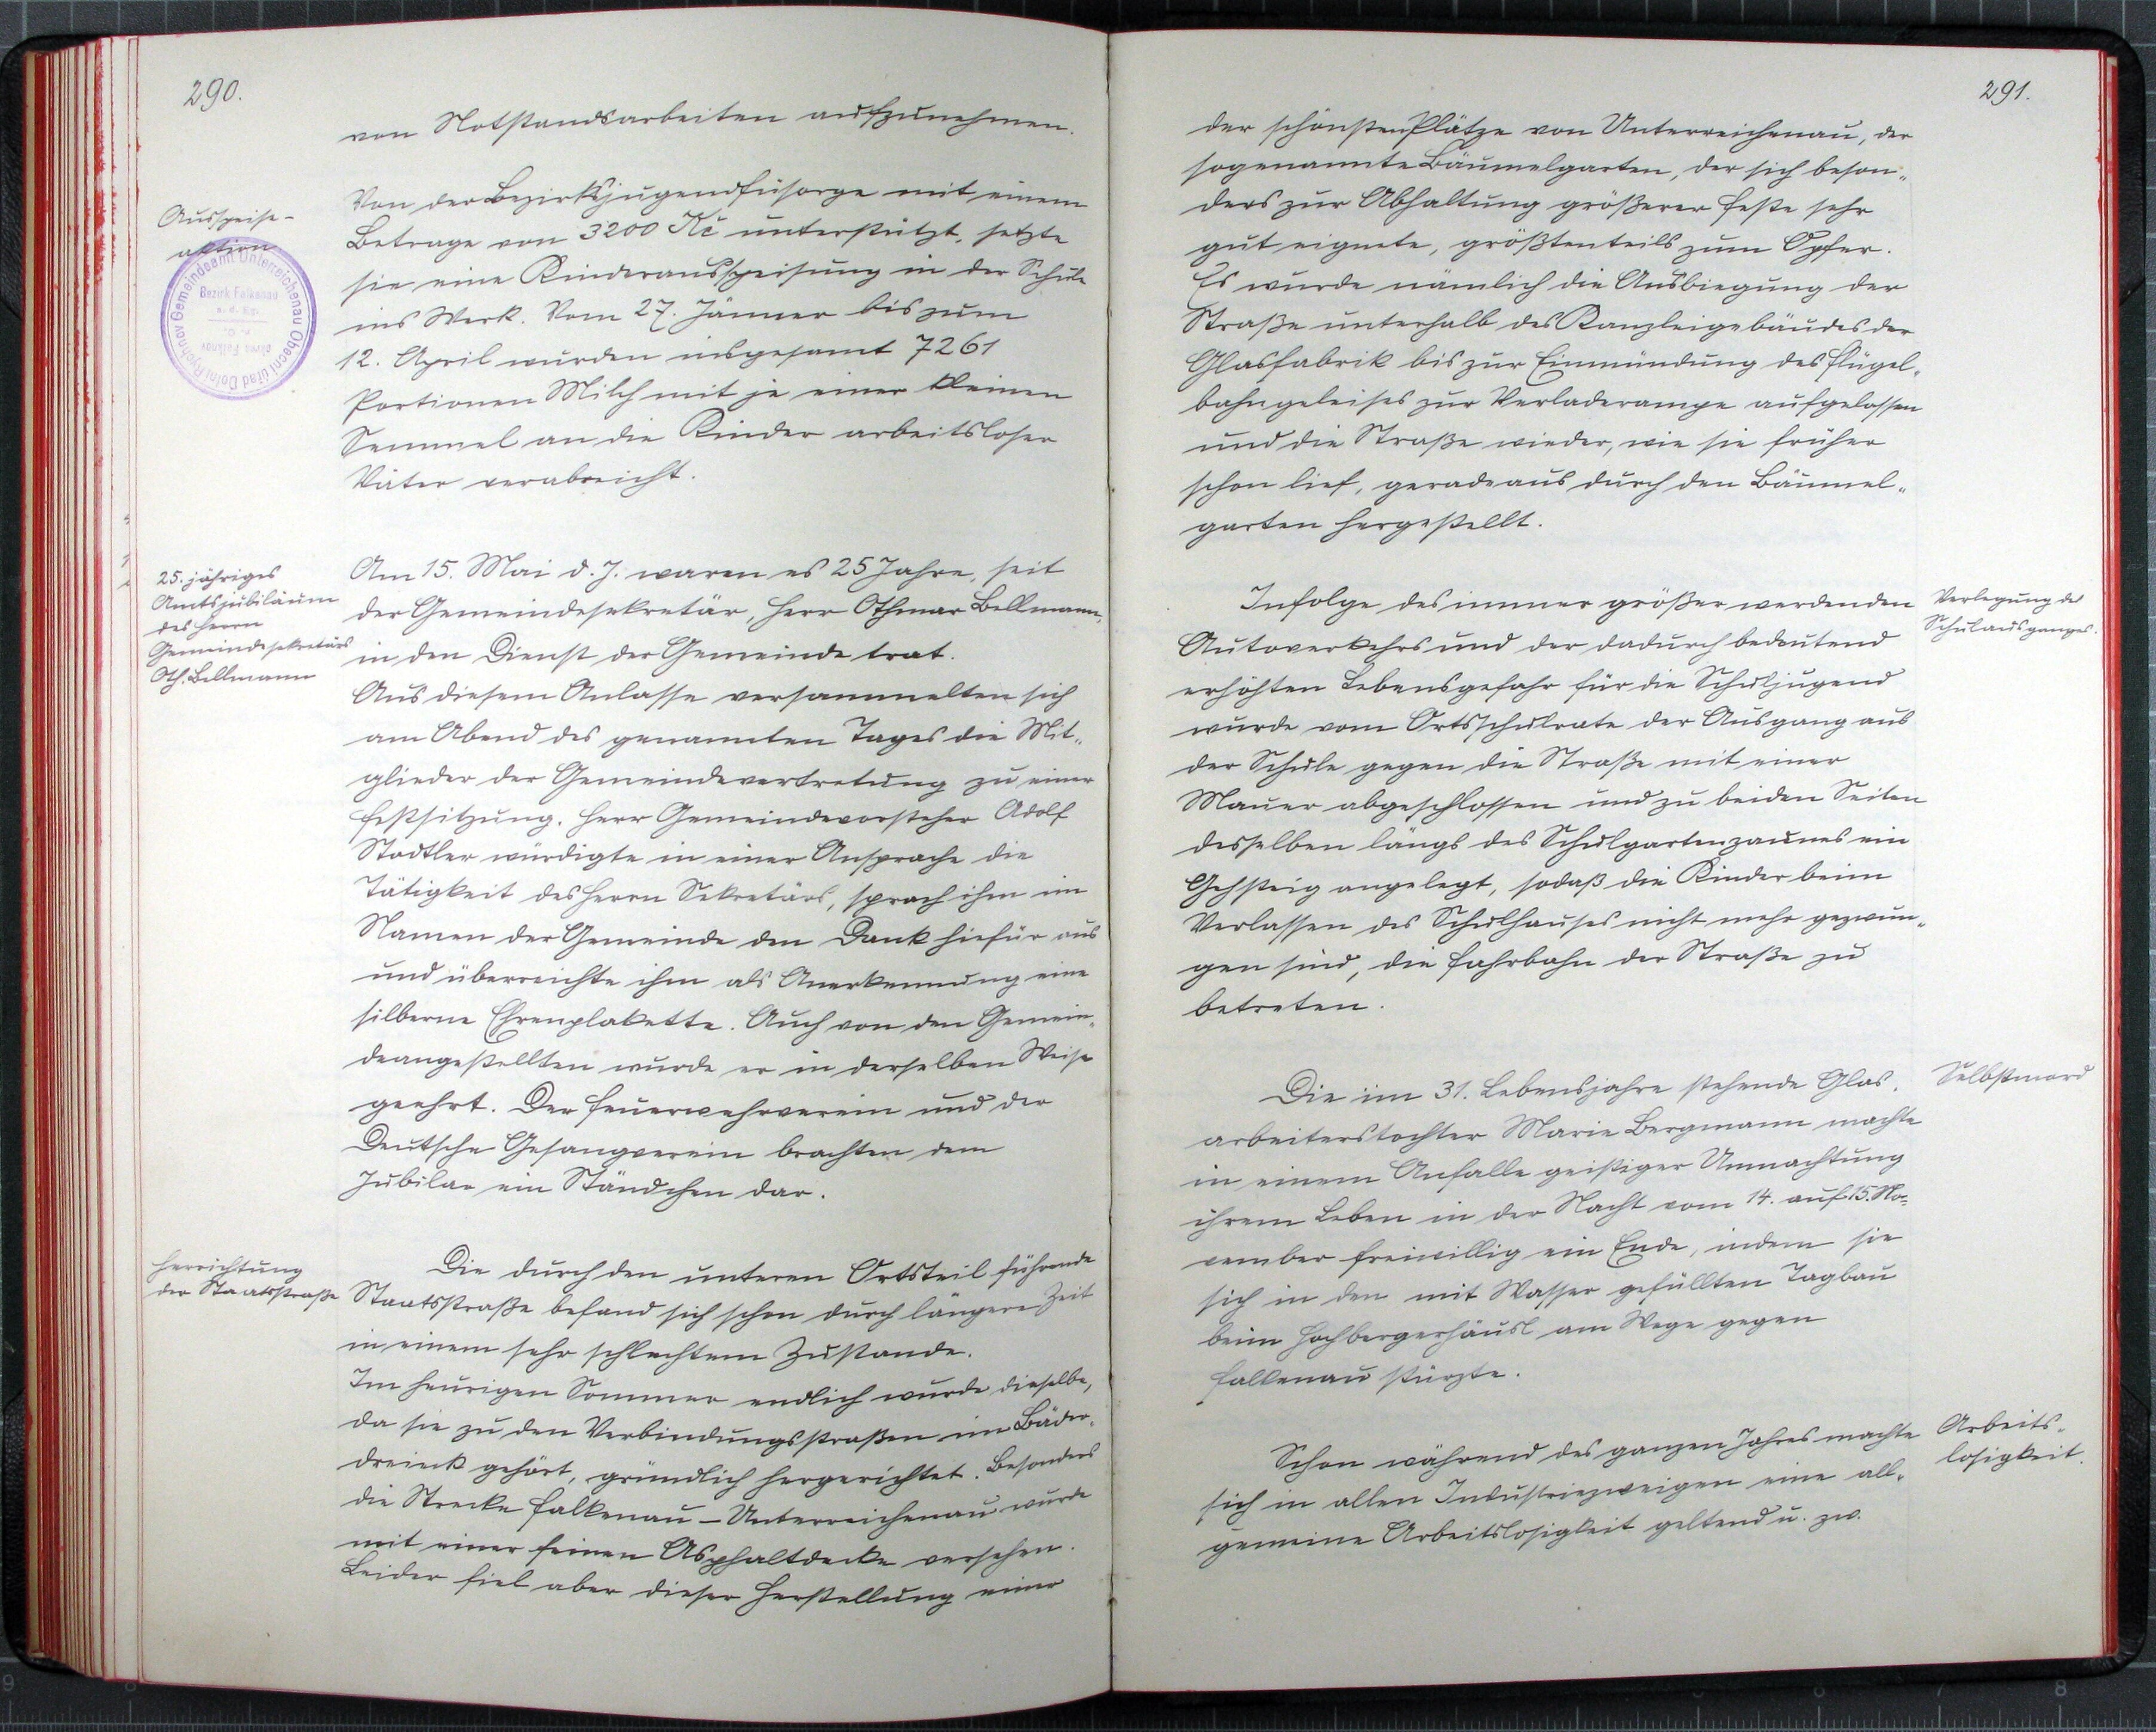 290.
von Notstandsarbeiten aufzunehmen.
Ausspeise-
aktion
Gemeindeamt Unterreichenau
Obecní úřad Dolní Rychnov
Bezirk Falkenau
okres Falknov
Von der Bezirksjugendfürsorge mit einem
Betrage von 3200 Kč unterstützt, setzte
sie eine Kinderausspeisung in der Schule
ins Werk. Vom 27. Jänner bis zum
12. April wurden insgesamt 7261
Portionen Milch mit je einer kleinen
Semmel an die Kinder arbeitsloser
Väter verabreicht.
25. jähriges
Amtsjubiläum
des Herrn
Gemeindesekretärs
Oth. Bellmann
Am 15. Mai d. J. waren es 25 Jahre, seit
der Gemeindesekretär, Herr Othmar Bellmann,
in den Dienst der Gemeinde trat.
Aus diesem Anlasse versammelten sich
am Abend des genannten Tages die Mit-
glieder der Gemeindevertretung zu einer
Festsitzung. Herr Gemeindevorsteher Adolf
Stadtler würdigte in einer Ansprache die
Tätigkeit des Herrn Sekretärs, sprach ihm im
Namen der Gemeinde den Dank hiefür aus
und überreichte ihm als Anerkennung eine
silberne Ehrenplakette. Auch von den Gemein-
deangestellten wurde er in derselben Weise
geehrt. Der Feuerwehrverein und der
Deutsche Gesangverein brachten dem
Jubilar ein Ständchen dar.
Herrichtung
der Staatsstraße
Die durch den unteren Ortsteil führende
Staatsstraße befand sich schon durch längere Zeit
in einem sehr schlechtem Zustande.
Im heurigen Sommer endlich wurde dieselbe,
da sie zu den Verbindungsstraßen im Bäder-
dreieck gehört, gründlich hergerichtet. Besonders
die Strecke Falkenau – Unterreichenau wurde
mit einer feinen Asphaltdecke versehen.
Leider fiel aber dieser Herstellung einer
291.
der schönsten Plätze von Unterreichenau, der
sogenannte Bäumelgarten, der sich beson-
ders zur Abhaltung größerer Feste sehr
gut eignete, größtenteils zum Opfer.
Es wurde nämlich die Ausbiegung der
Straße unterhalb des Kanzleigebäudes der
Glasfabrik bis zur Einmündung des Flügel-
bahngeleises zur Verladerampe aufgelassen
und die Straße wieder, wie sie früher
schon lief, geradeaus durch den Bäumel-
garten hergestellt.
Verlegung des
Schulausganges.
Infolge des immer größer werdenden
Autoverkehrs und der dadurch bedeutend
erhöhten Lebensgefahr für die Schuljugend
wurde vom Ortsschulrate der Ausgang aus
der Schule gegen die Straße mit einer
Mauer abgeschlossen und zu beiden Seiten
desselben längs des Schulgartenzaunes ein
Gehsteig angelegt, sodaß die Kinder beim
Verlassen des Schulhauses nicht mehr gezwun-
gen sind, die Fahrbahn der Straße zu
betreten.
Selbstmord
Die im 31. Lebensjahre stehende Glas-
arbeiterstochter Marie Bergmann machte
in einem Anfalle geistiger Umnachtung
ihrem Leben in der Nacht vom 14. auf 15. No-
vember freiwillig ein Ende, indem sie
sich in den mit Wasser gefüllten Tagbau
beim Hochbergerhäusl am Wege gegen
Falkenau stürzte.
Arbeits-
losigkeit.
Schon während des ganzen Jahres machte
sich in allen Industriezweigen eine all-
gemeine Arbeitslosigkeit geltend u. zw.